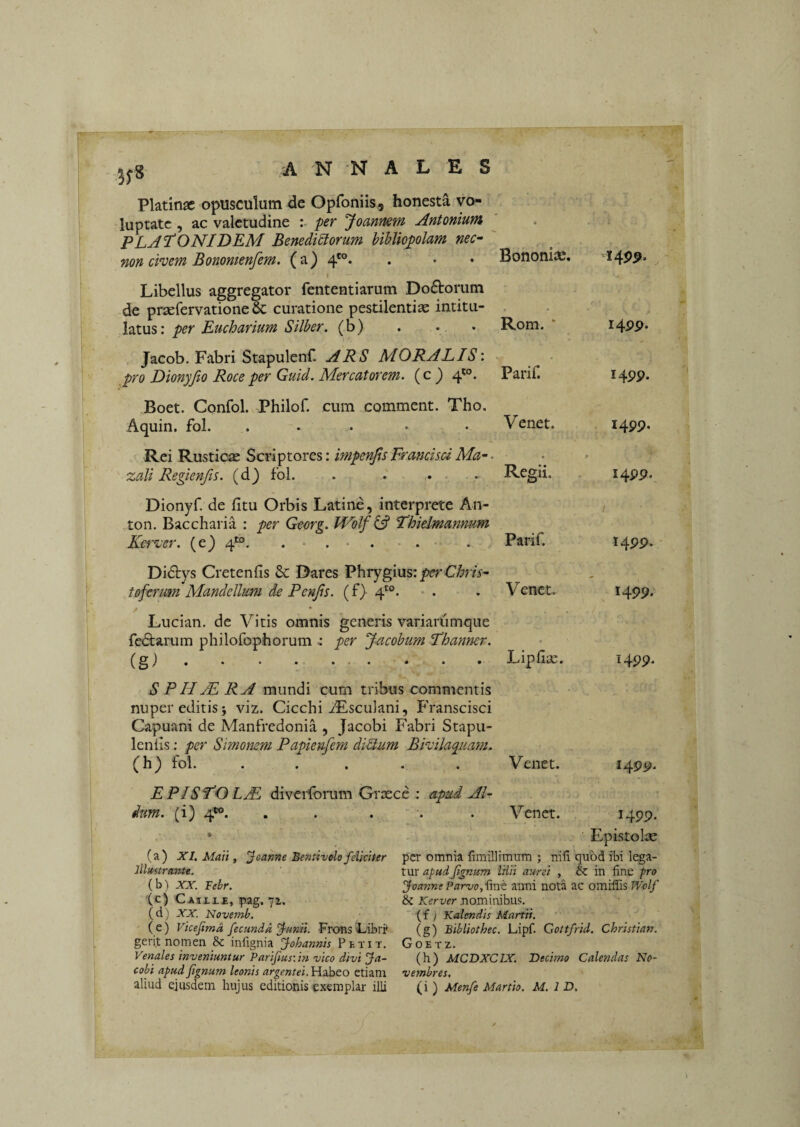 358 ANNALES
Platinæ opusculum de Opſoniis, honestâ vo-
luptate , ac valetudine : per Joannem Antonium
PLATONIDEM Benedictorum bibliopolam nec-
non civem Bononienſem. (a) 4to. . . . Bononiæ. 1499.
Libellus aggregator ſententiarum Doctorum
de præſervatione & curatione pestilentiæ intitu-
latus: per Eucharium Silber. (b) . . . Rom. 1499.
Jacob. Fabri Stapulenſ. ARS MORALIS:
pro Dionyſio Roce per Guid. Mercatorem. (c) 4to. Pariſ. 1499.
Boet. Conſol. Philoſ. cum comment. Tho.
Aquin. fol. . . . . . Venet. 1499.
Rei Rusticæ Scriptores: impenſis Francisci Ma-
zali Regienſis. (d) fol. . . . . Regii. 1499.
Dionyſ. de ſitu Orbis Latinè, interprete An-
ton. Baccharia : per Georg. Wolf & Thielmannum
Kerver. (e) 4to. . . . . . Pariſ. 1499.
Dictys Cretenſis & Dares Phrygius: per Chris-
toferum Mandellum de Penſis. (f) 4to. . . Venet. 1499.
Lucian. de Vitis omnis generis variarumque
ſectarum philoſophorum : per Jacobum Thanner.
(g) . . . . . . . . . Lipſiæ. 1499.
SPHÆRA mundi cum tribus commentis
nuper editis; viz. Cicchi Æsculani, Franscisci
Capuani de Manfredoniâ , Jacobi Fabri Stapu-
lenſis : per Simonem Papienſem dictum Bivilaquam.
(h) fol. . . . . . Venet. 1499.
EPISTOLÆ diverſorum Græcè : apud Al-
dum. (i) 4to. . . . . . Venet. 1499.
Epistolæ
(a) XI. Maii , Joanne Bentivolo feliciter
Illustrante.
(b) XX. Febr.
(c) CAILLE, pag. 72.
(d) XX. Novemb.
(e) Viceſimâ ſecundâ Junii. Frons Libri
gerit nomen & inſignia Johannis PETIT.
Venales inveniuntur Pariſius: in vico divi Ja-
cobi apud ſignum leonis argentei. Habeo etiam
aliud ejusdem hujus editionis exemplar illi
per omnia ſimillimum ; niſi quòd ibi lega-
tur apud ſignum lilii aurei , & in fine pro
Joanne Parvo, ſine anni notâ ac omiſſis Wolf
& Kerver nominibus.
(f) Kalendis Martii.
(g) Bibliothec. Lipſ. Gottfrid. Christian.
GOETZ.
(h) MCDXCIX. Decimo Calendas No-
vembres.
(i) Menſe Martio. M. I D.